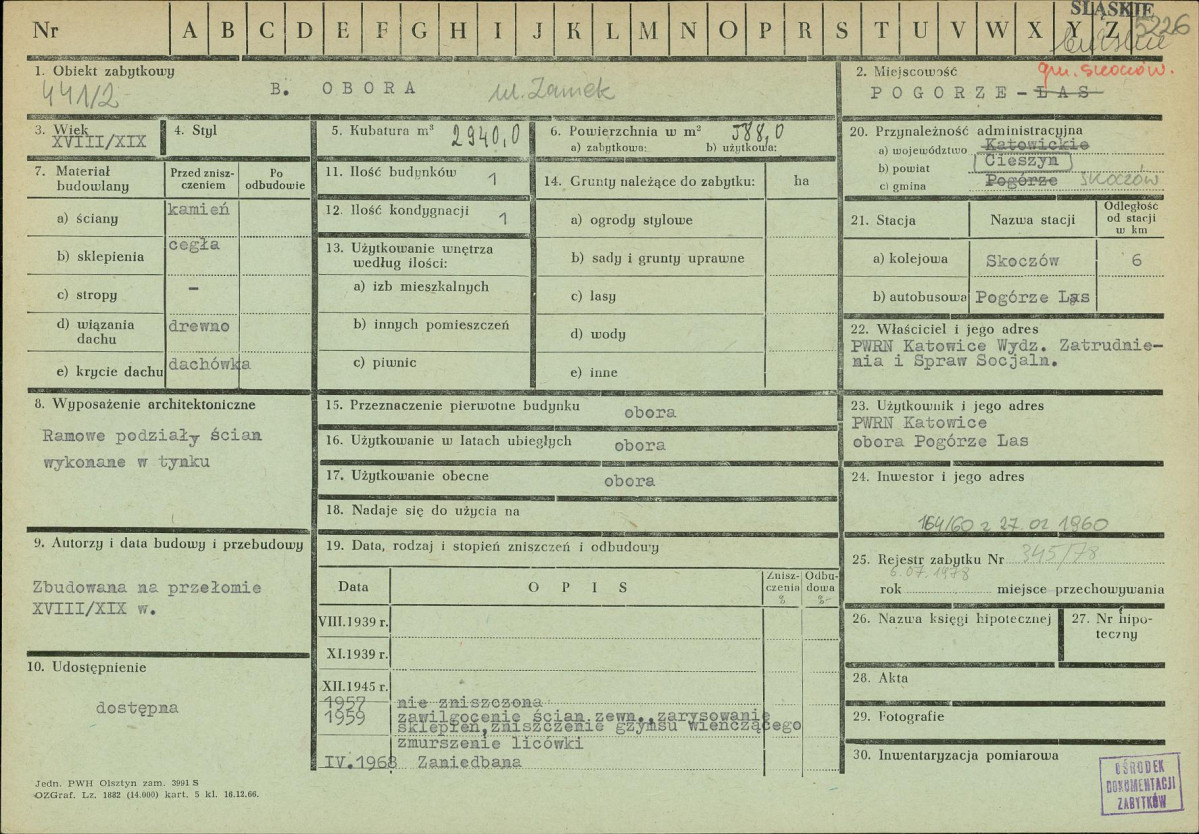 Nr A B C D E F G H I J K L M N O P R S T U V W X Y Z
ŚLĄSKIE
5226
gm. Skoczów.
1. Obiekt zabytkowy
441/2
B. OBORA
ul. Zamek
2. Miejscowość
POGORZE-LAS
3. Wiek
XVIII/XIX
4. Styl
5. Kubatura m³ 2940,0
6. Powierzchnia w m² 588,0
a) zabytkowa: b) użytkowa:
7. Materiał budowlany
Przed zniszczeniem
Po odbudowie
a) ściany kamień
b) sklepienia cegła
c) stropy –
d) wiązania dachu drewno
e) krycie dachu dachówka
11. Ilość budynków 1
12. Ilość kondygnacji 1
13. Użytkowanie wnętrza według ilości:
a) izb mieszkalnych
b) innych pomieszczeń
c) piwnic
14. Grunty należące do zabytku: ha
a) ogrody stylowe
b) sady i grunty uprawne
c) lasy
d) wody
e) inne
20. Przynależność administracyjna
a) województwo Katowickie
b) powiat Cieszyn
c) gmina Pogórze SKOCZÓW
21. Stacja
Nazwa stacji
Odległość od stacji w km
a) kolejowa Skoczów 6
b) autobusowa Pogórze Las
22. Właściciel i jego adres
PWRN Katowice Wydz. Zatrudnie-
nia i Spraw Socjaln.
8. Wyposażenie architektoniczne
Ramowe podziały ścian
wykonane w tynku
15. Przeznaczenie pierwotne budynku obora
16. Użytkowanie w latach ubiegłych obora
17. Użytkowanie obecne obora
18. Nadaje się do użycia na
23. Użytkownik i jego adres
PWRN Katowice
obora Pogórze Las
24. Inwestor i jego adres
9. Autorzy i data budowy i przebudowy
Zbudowana na przełomie
XVIII/XIX w.
10. Udostępnienie
dostępna
19. Data, rodzaj i stopień zniszczeń i odbudowy
Data OPIS Zniszczenia % Odbudowa %
VIII.1939 r.
XI.1939 r.
XII.1945 r.
1957 nie zniszczona
1959 zawilgocenie ścian zewn., zarysowanie
sklepień, zniszczenie gzymsu wieńczącego
zmurszenie licówki
IV.1968 Zaniedbana
164/60 z 27.02 1960
25. Rejestr zabytku Nr 345/78
6.07.1978
rok miejsce przechowywania
26. Nazwa księgi hipotecznej
27. Nr hipo-
teczny
28. Akta
29. Fotografie
30. Inwentaryzacja pomiarowa
OŚRODEK
DOKUMENTACJI
ZABYTKÓW
Jedn. PWH Olsztyn zam. 3991 S
OZGraf. Lz. 1882 (14.000) kart. 5 kl. 16.12.66.